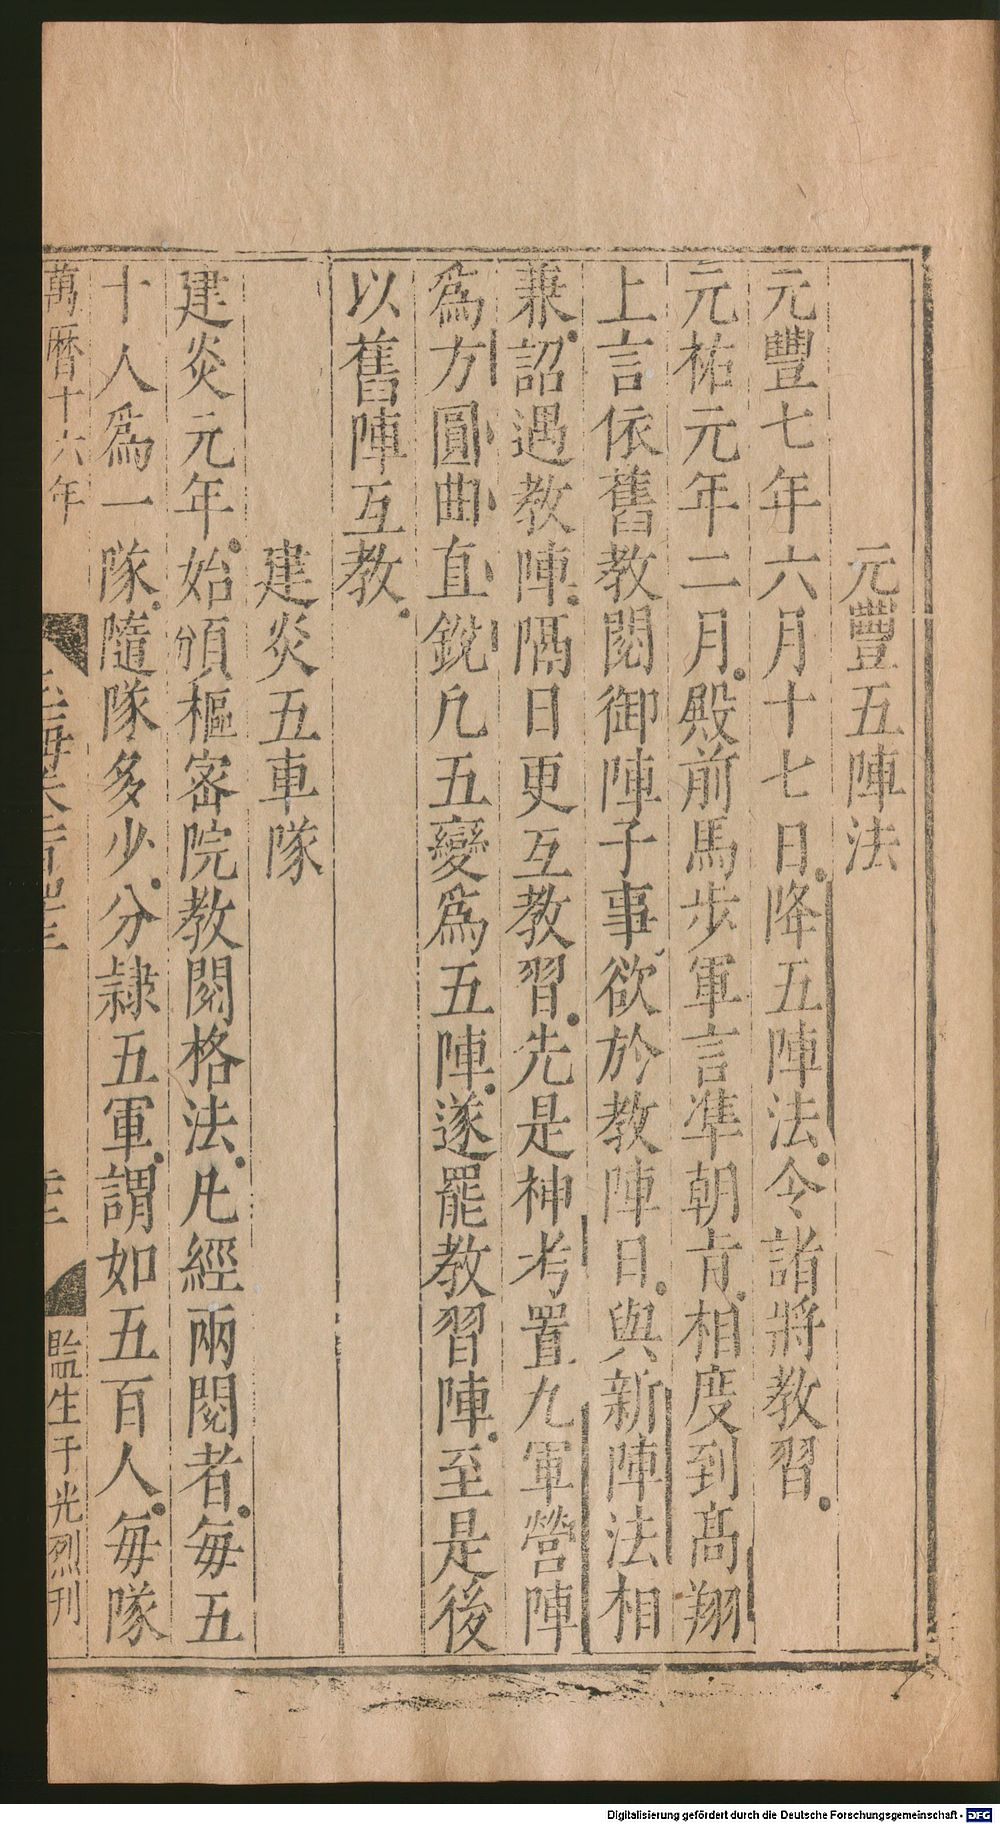 元豐五陣法
元豐七年六月十七日降五陣法令諸將教習
元祐元年二月殿前馬步軍言準朝㫖相度到髙翔
上言依舊教閱御陣子事欲於教陣日與新陣法相
兼詔遇教陣隔日更互教習先是神考置九軍營陣
爲方圓曲直銳凢五變爲五陣遂罷教習陣至是後
以舊陣互教
建炎五車隊
建炎元年始頒樞密院教閱格法凢經兩閱者每五
十人爲一隊隨隊多少分隷五軍謂如五百人每隊
萬曆十六年
監生于光烈刊
Digitalisierung gefördert durch die Deutsche Forschungsgemeinschaft - DFG